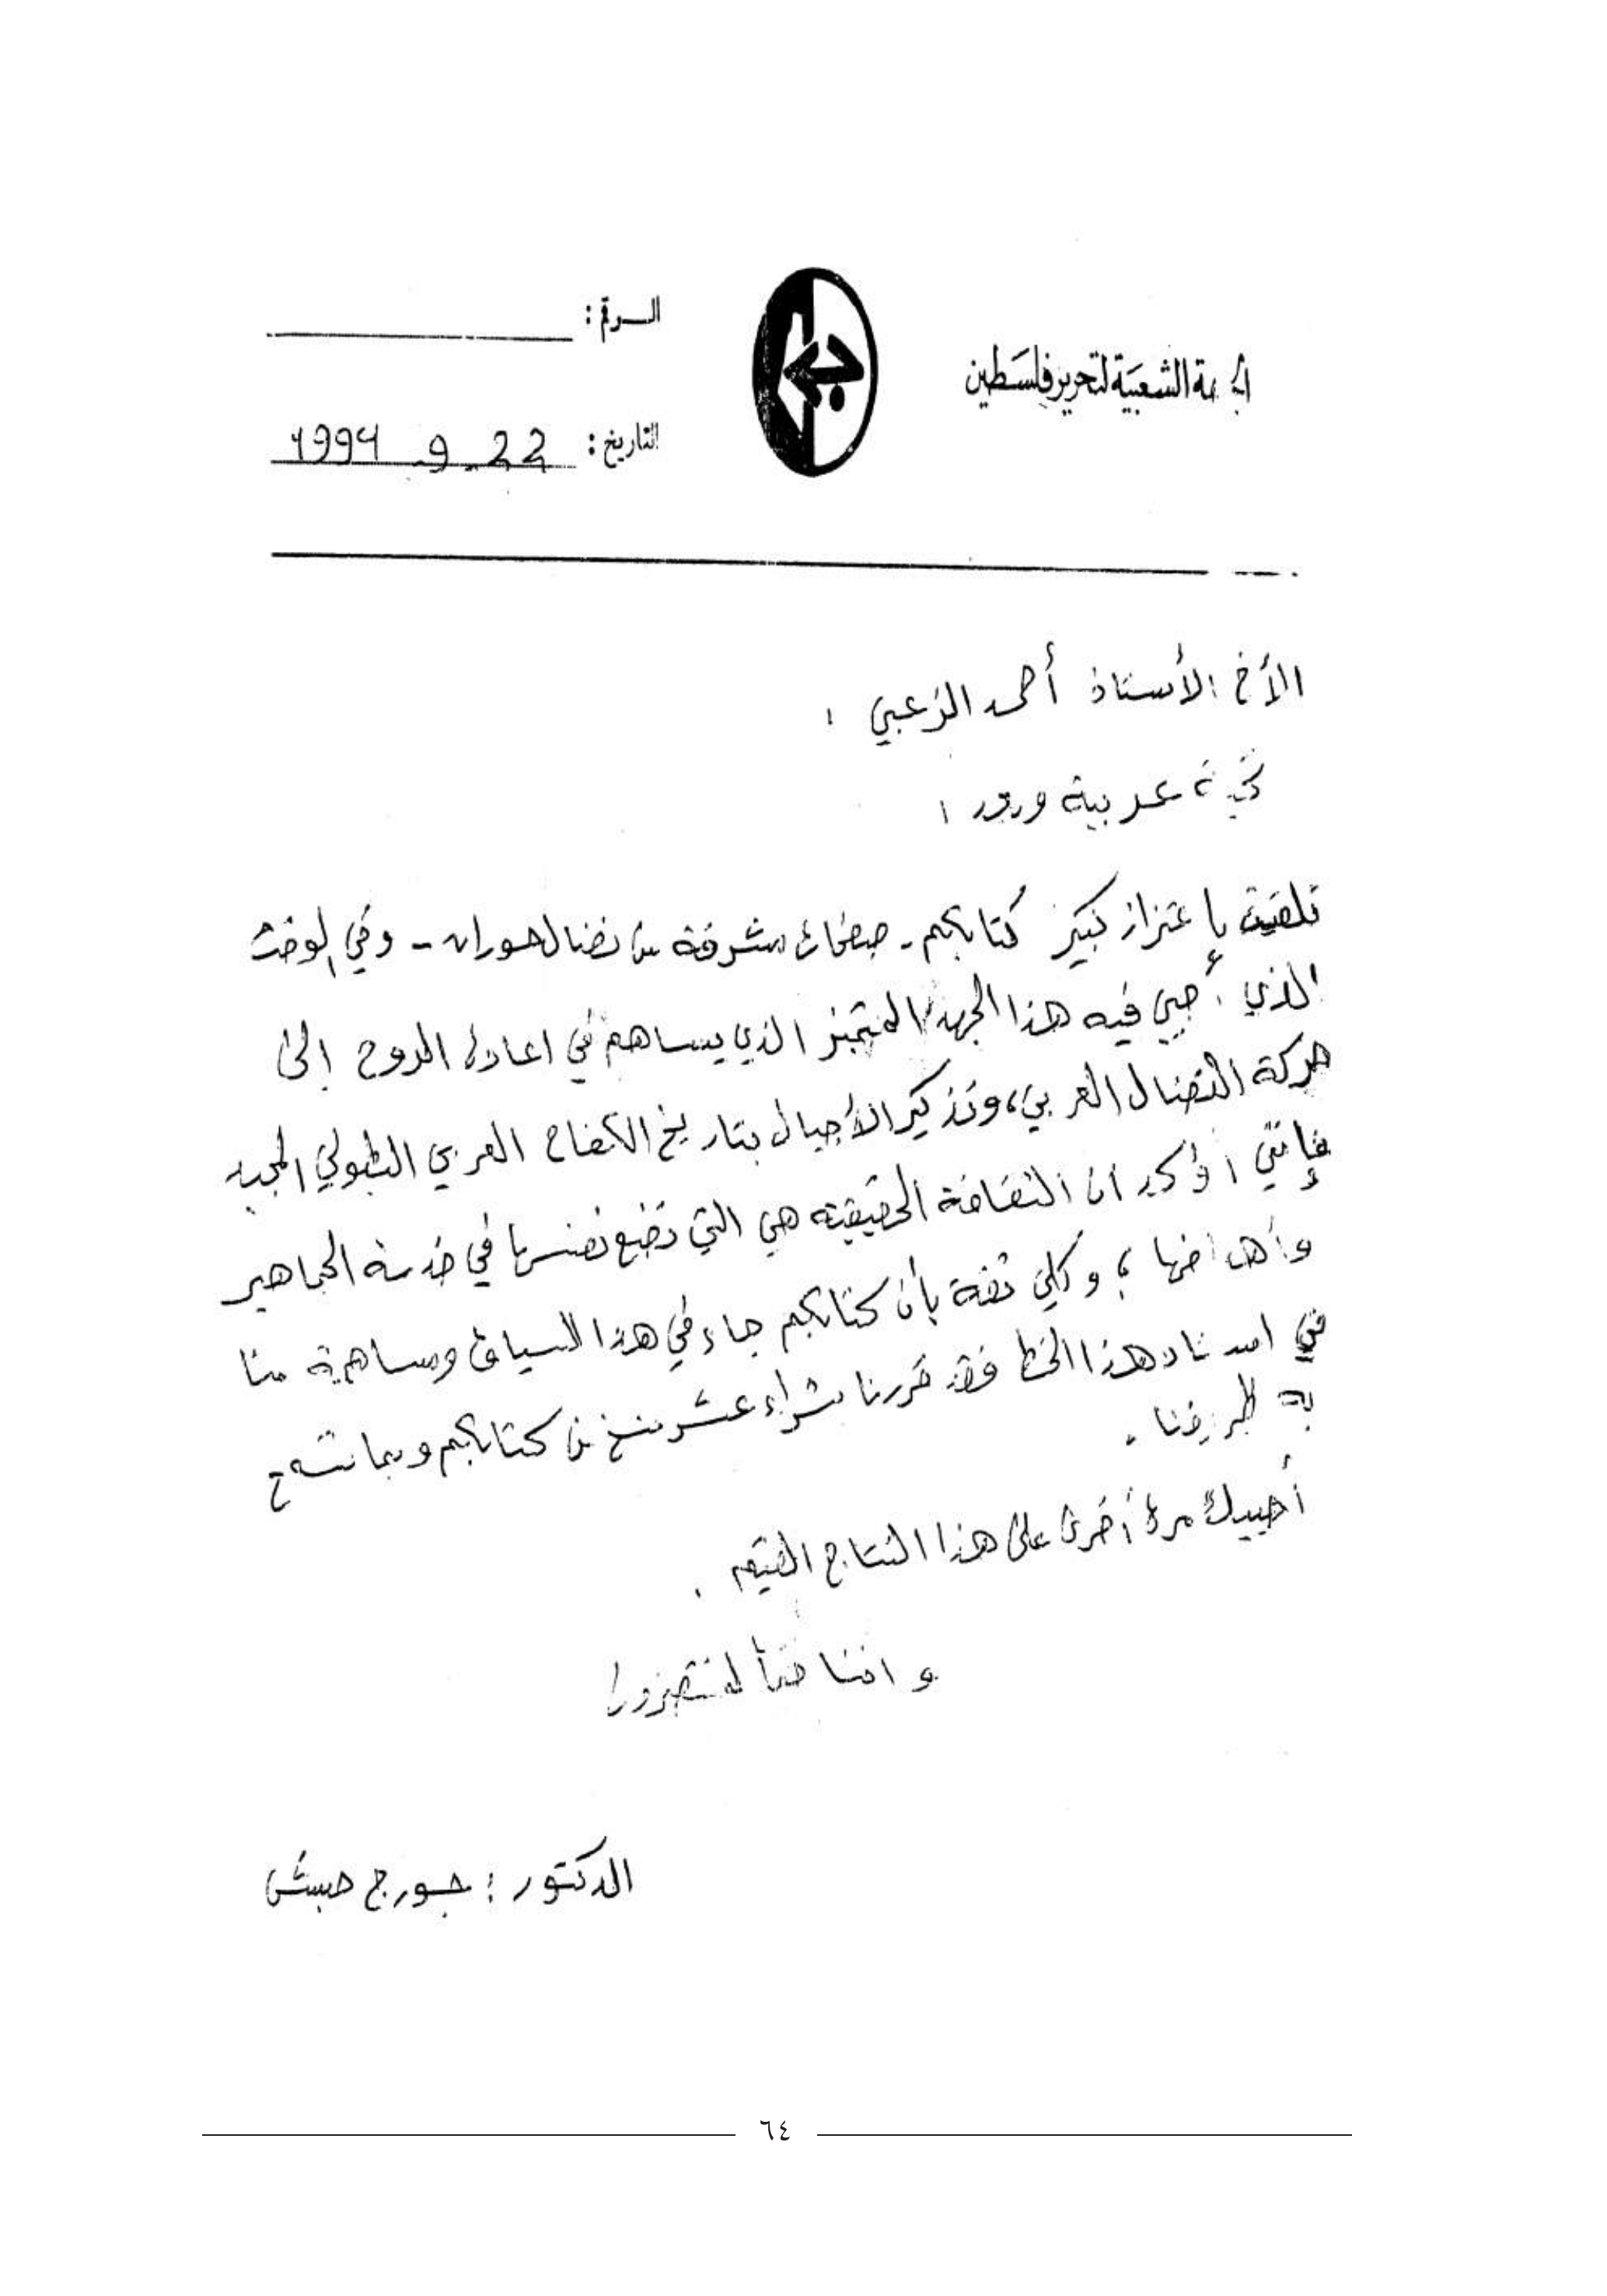 الجبهة الشعبية لتحرير فلسطين
الرقم:
التاريخ: 22 - 9 - 1994
الأخ الأستاذ أحمد الزعبي ،
تحية عربية وبعد ،
تلقيت باعتزاز كبير كتابكم - صفحات مشرقة من نضال حوران - وفي الوقت
الذي أحيي فيه هذا الجهد المتميز الذي يساهم في اعادة الروح إلى
حركة النضال العربي، وتذكير الأجيال بتاريخ الكفاح العربي البطولي المجيد
فإنني أؤكد أن الثقافة الحقيقية هي التي تضع نفسها في خدمة الجماهير
وأهدافها ، وكلي ثقة بأن كتابكم جاء في هذا السياق ومساهمة منا
في اسناد هذا الخط فقد قررنا شراء عشر نسخ من كتابكم وبما تسمح
به ظروفنا .
أحييك مرة أخرى على هذا النتاج القيم .
و اننا حتماً لمنتصرون
الدكتور : جورج حبش
٦٤